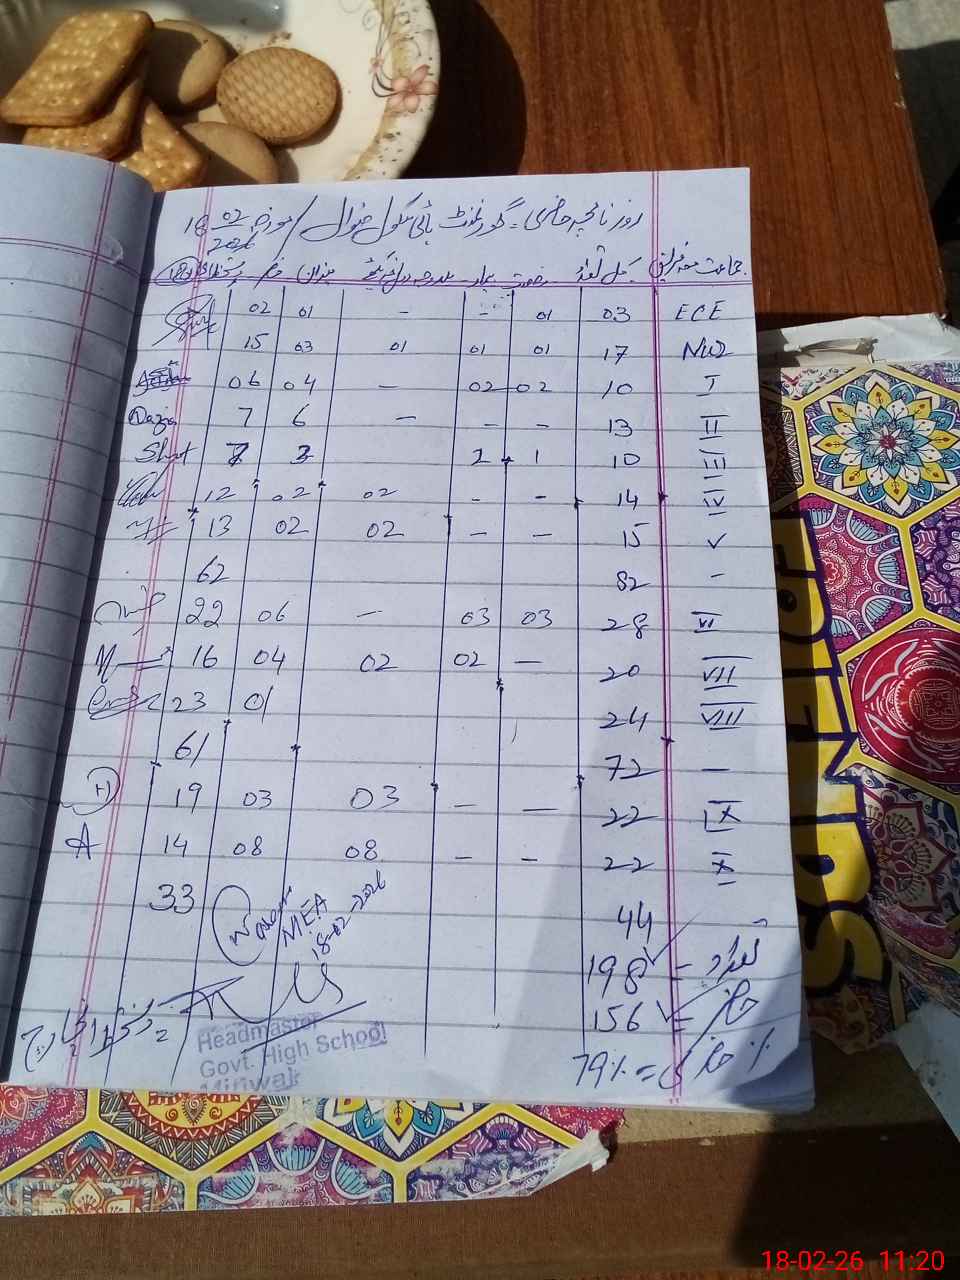 روزنامچہ حاضری گورنمنٹ ہائی سکول منوال / مورخہ 18 02/2026
جماعت کل تعداد رخصت بیمار میزان حاضر
ECE 03 01 - - 01 02
Nur 17 01 01 01 03 15
I 10 02 02 - 04 06
II 13 - - - 6 7 Nazia
III 10 1 2 3 7
IV 14 - - 02 02 12
V 15 - - 02 02 13
- 82 62
VI 28 03 03 - 06 22
VII 20 - 02 02 04 16
VIII 24 01 23
- 72 61
IX 22 - - 03 03 19 H
X 22 - - 08 08 14 A
44 33
MEA
18-02-2026
تعداد - 198
حاضر = 156
% حاضری = 79%
Headmaster
Govt. High School
Miriwal
FRIENDS
18-02-26 11:20